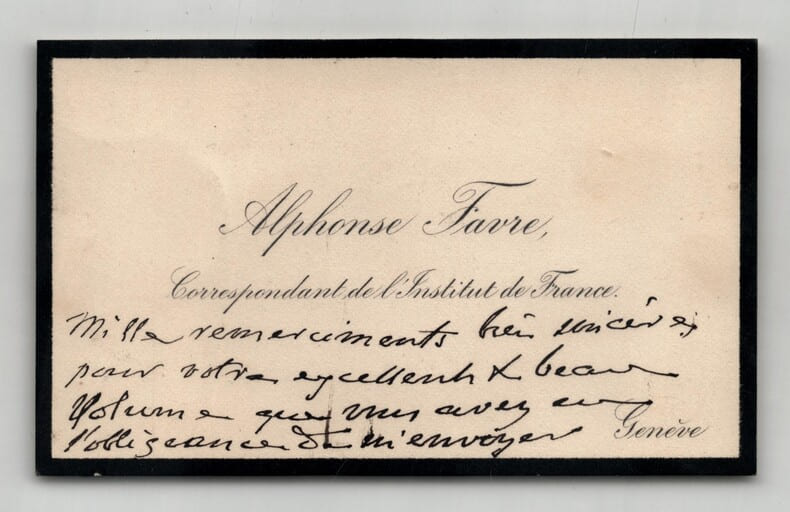 Alphonse Favre,
Correspondant de l'Institut de France.
Mille remerciments bien sincères
pour votre excellent & beau
Volume que vous avez eu
l'obligeance de m'envoyer
Genève